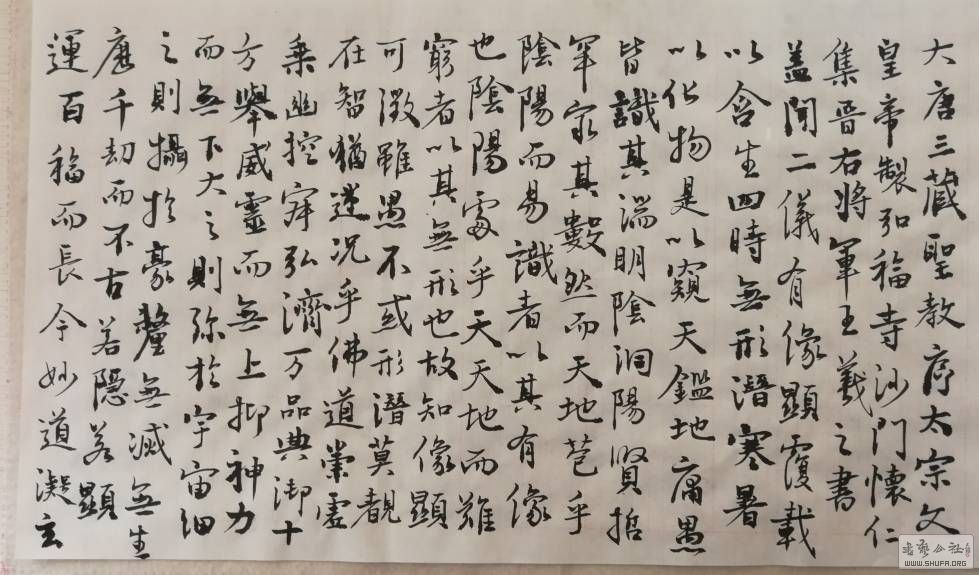 大唐三藏聖教序太宗文
皇帝製弘福寺沙門懷仁
集晋右將軍王羲之書
盖聞二儀有像顯覆載
以含生四時無形潛寒暑
以化物是以窺天鑑地庸愚
皆識其端明陰洞陽賢哲
罕窮其數然而天地苞乎
陰陽而易識者以其有像
也陰陽處乎天天地而難
窮者以其無形也故知像顯
可徵雖愚不或形潛莫覩
在智猶迷況乎佛道崇虛
乘幽控寂弘濟万品典御十
方舉威靈而無上抑神力
而無下大之則弥於宇宙細
之則攝於豪釐無滅無生
歷千劫而不古若隱若顯
運百福而長今妙道凝玄
WWW.SHUFA.ORG